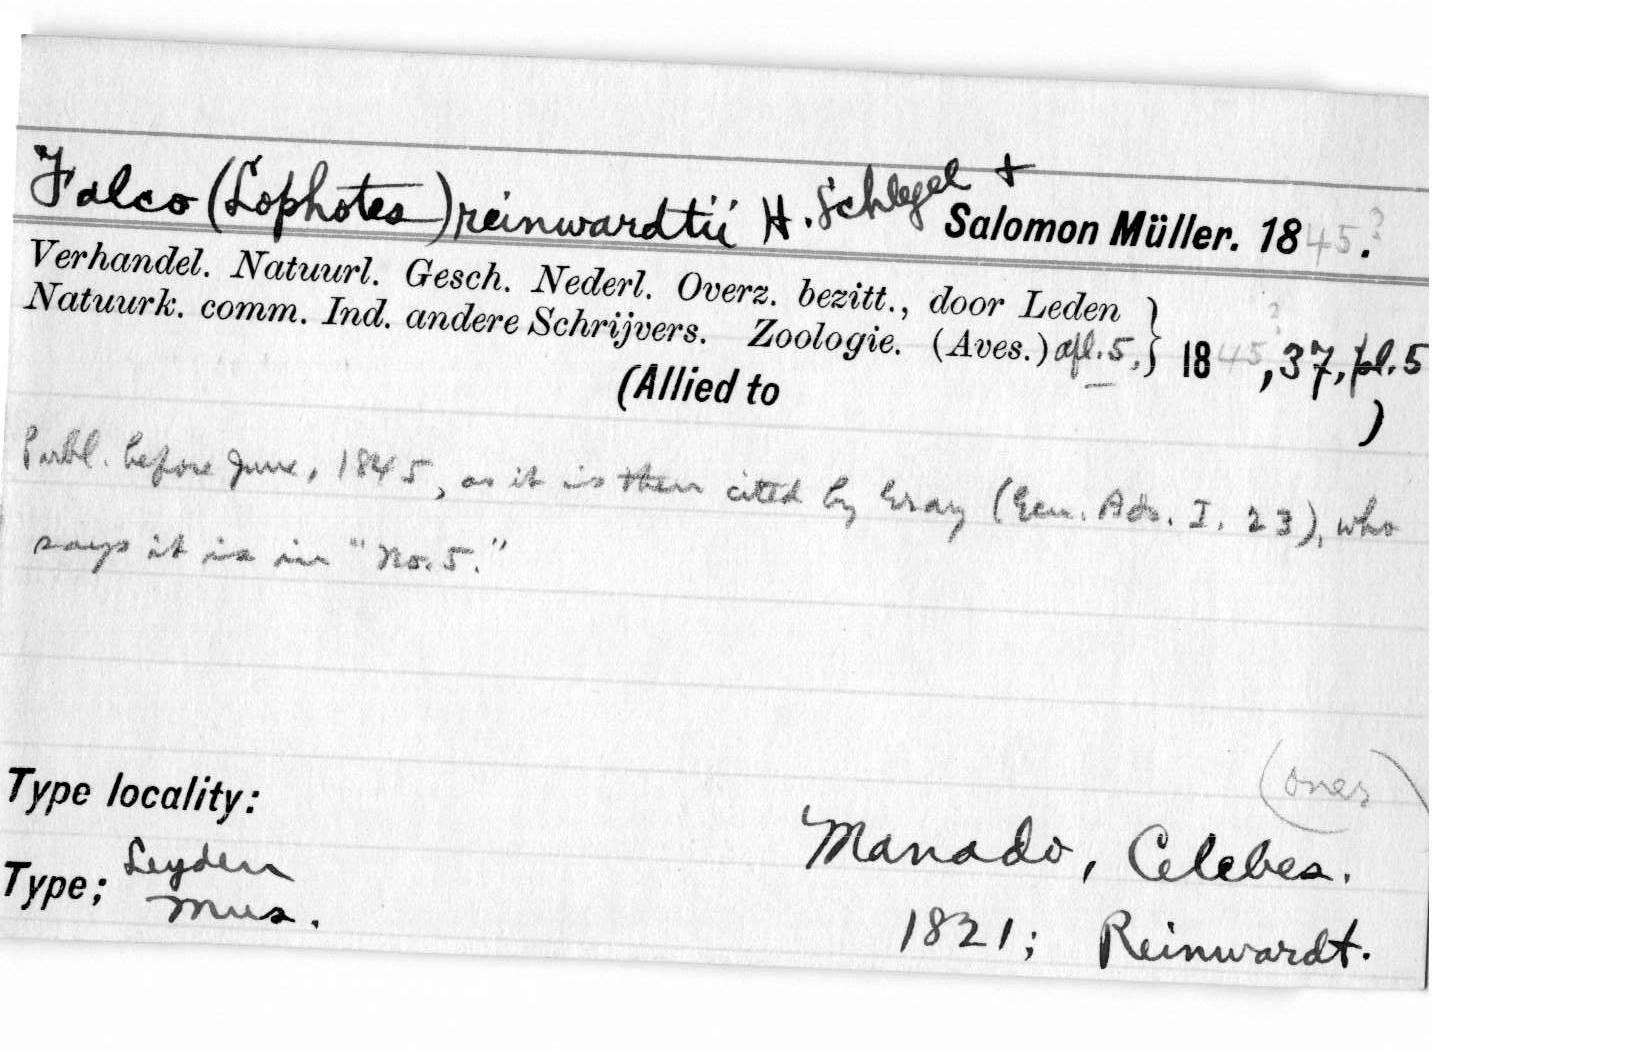 Falco (Lophotes) reinwardtii H. Schlegel + Salomon Müller. 1845?.
Verhandel. Natuurl. Gesch. Nederl. Overz. bezitt., door Leden }
Natuurk. comm. Ind. andere Schrijvers. Zoologie. (Aves.) afl. 5. } 1845?, 37, pl. 5
(Allied to )
Publ. before June, 1845, as it is then cited by Gray (Gen. Bds. I. 23), who
says it is in "No. 5."
Type locality:
Manado, Celebes.
Type; Leyden
Mus.
1821; Reinwardt.